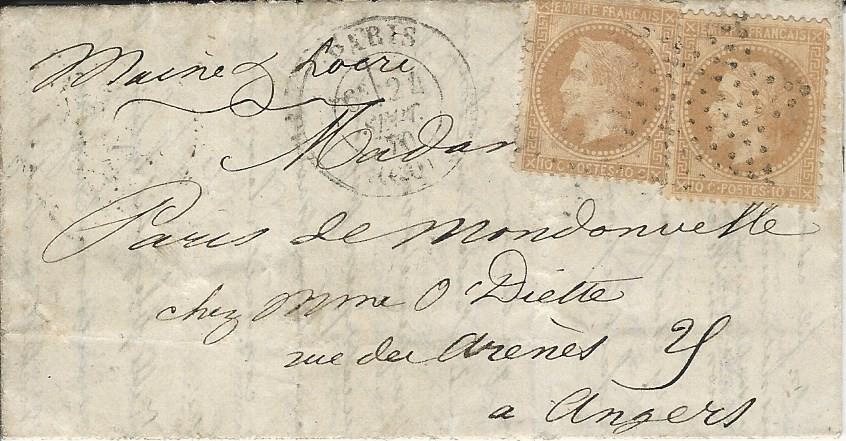 EMPIRE FRANÇAIS FRANÇAIS
PARIS
Maine & Loire
24
SEPT.
70
(60)
10 C POSTES 10 C 10 C POSTES 10 C
Madame
Paris de Mondonville
chez Mme O'Diette
rue des Arènes 25
a Angers